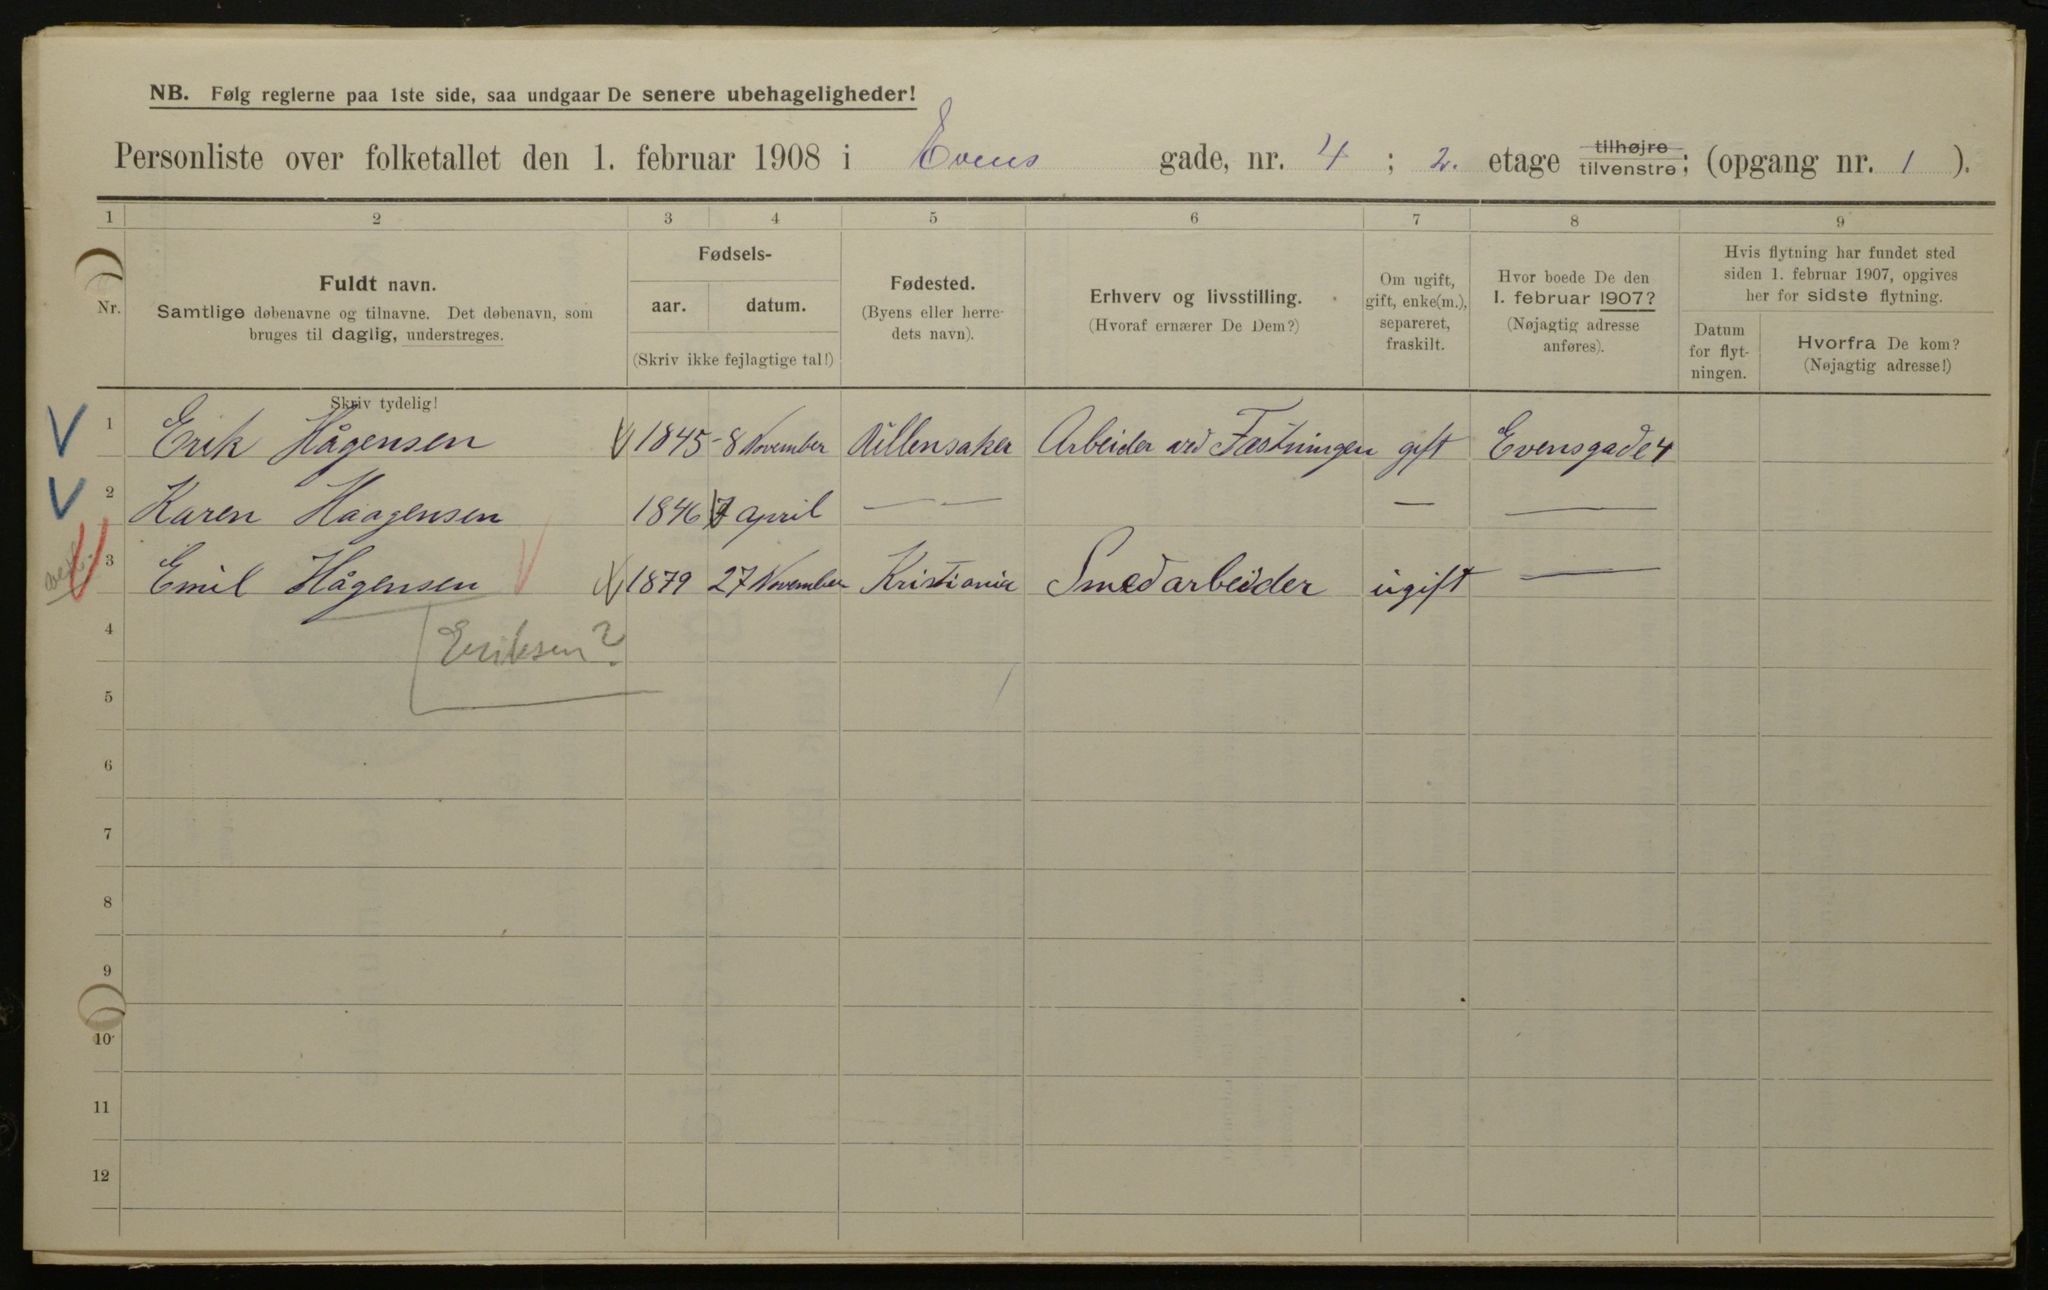 NB. Følg reglerne paa 1ste side, saa undgaar De senere ubehageligheder!
Personliste over folketallet den 1. februar 1908 i Evens gade, nr. 4 ; 2. etage tilhøjre tilvenstre; (opgang nr. 1 ).
1 2 3 4 5 6 7 8 9
Nr.
Fuldt navn.
Samtlige døbenavne og tilnavne. Det døbenavn, som
bruges til daglig, understreges.
Skriv tydelig!
Fødsels-
aar. datum.
(Skriv ikke fejlagtige tal!)
Fødested.
(Byens eller herre-
dets navn).
Erhverv og livsstilling.
(Hvoraf ernærer De Dem?)
Om ugift,
gift, enke(m.),
separeret,
fraskilt.
Hvor boede De den
1. februar 1907?
(Nøjagtig adresse
anføres).
Hvis flytning har fundet sted
siden 1. februar 1907, opgives
her for sidste flytning.
Datum
for flyt-
ningen.
Hvorfra De kom?
(Nøjagtig adresse!)
1 Erik Hågensen 1845 - 8 November Ullensaker Arbeider ved Fæstningen gift Evensgade 4
2 Karen Haagensen 1846 7 april — — — —
3 Emil Hågensen 1879 27 November Kristiania Smedarbeider ugift —
4
Eriksen?
5
6
7
8
9
10
11
12